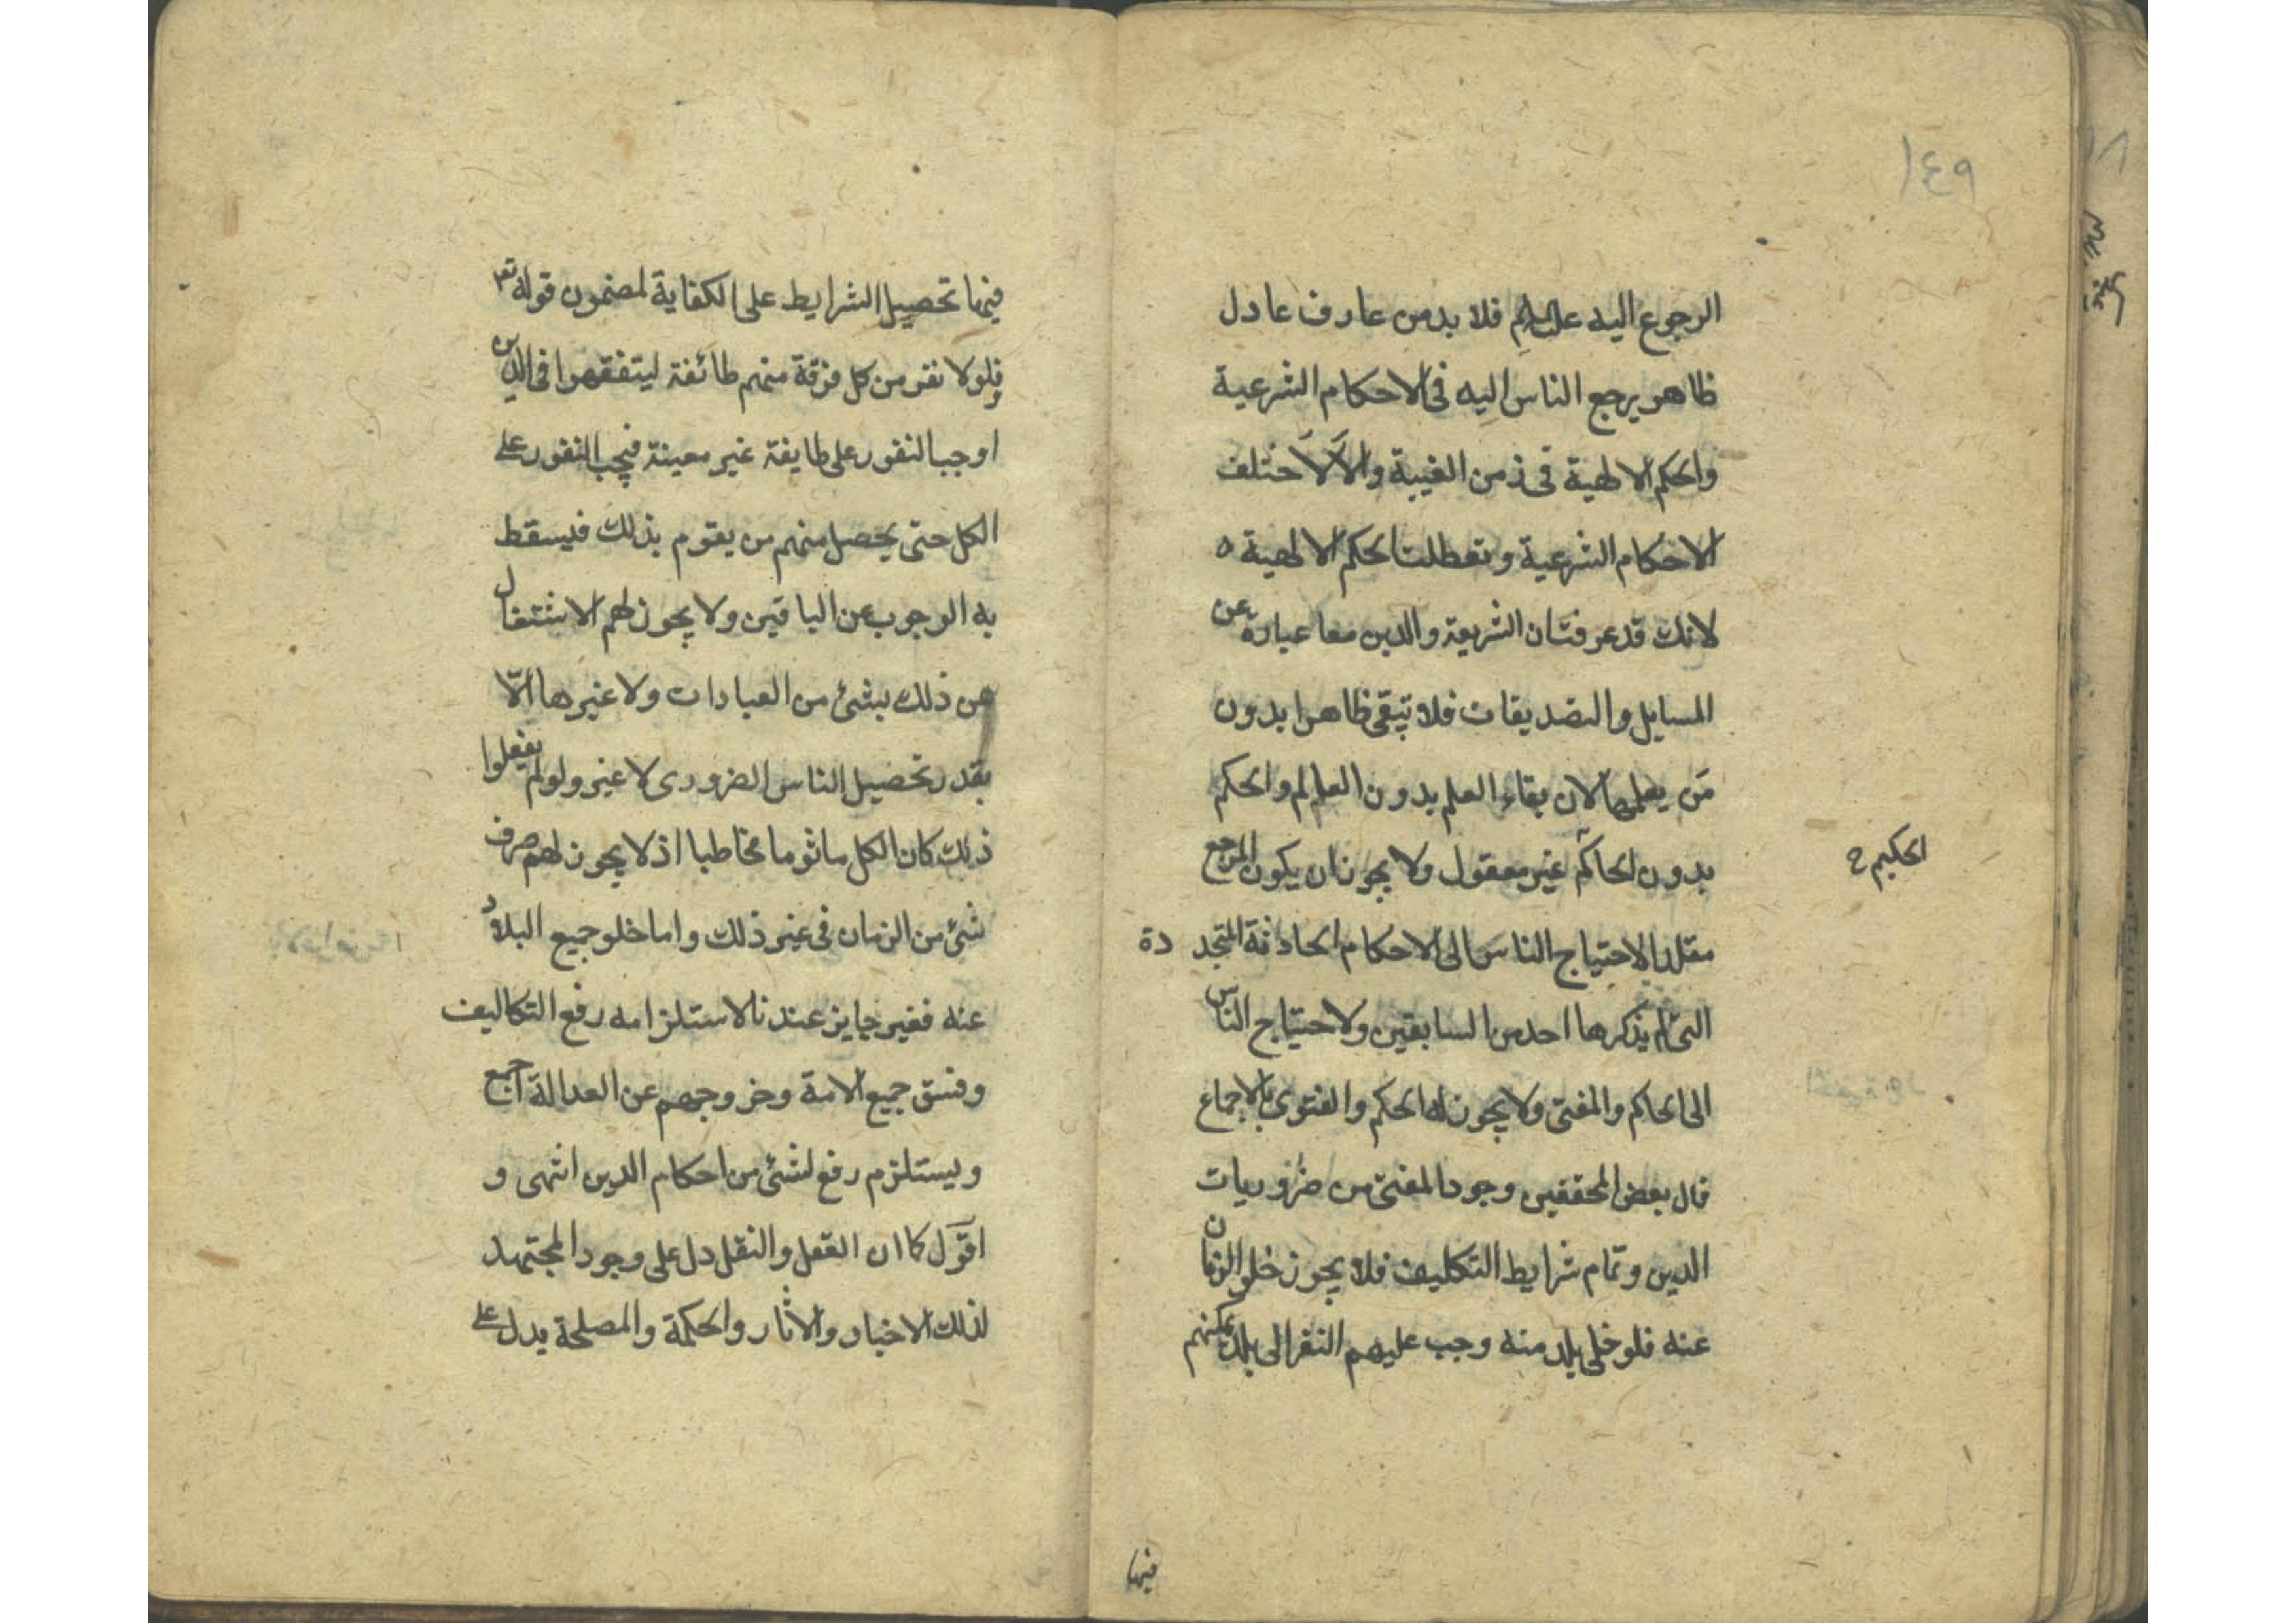 ١٤٩
الرجوع اليه عليه السلام فلا بد من عارف عادل
ظاهر يرجع الناس اليه فى الاحكام الشرعية
والحكم الالهية فى زمن الغيبة والا لاختلف
الاحكام الشرعية وتعطلت الحكم الالهية ه
لانك قد عرفت ان الشريعة والدين معا عبارة عن
المسايل والتصديقات فلا تبقى ظاهرا بدون
من يعلمها لان بقاء العلم بدون العالم والحكم
بدون الحاكم غير معقول ولا يجوز ان يكون المرجع
الحكيم ح
مقلدا لاحتياج الناس الى الاحكام الحادثة المتجددة
التى لم يذكرها احد من السابقين ولاحتياج الناس
الى الحاكم والمفتى ولا يجوز له الحكم والفتوى بالاجماع
قال بعض المحققين وجود المفتى من ضروريات
الدين وتمام شرايط التكليف فلا يجوز خلو الزمان
عنه فلو خلى بلد منه وجب عليهم النفر الى بلد يمكنهم
فيها
فيها تحصيل الشرايط على الكفاية لمضمون قوله تع
فلولا نفر من كل فرقة منهم طائفة ليتفقهوا فى الدين
اوجب النفور على طايفة غير معينة فيجب النفور على
الكل حتى يحصل منهم من يقوم بذلك فيسقط
به الوجوب عن الباقين ولا يجوز لهم الاشتغال
عن ذلك بشئ من العبادات ولا غيرها الّا
بقدر تحصيل الناس الضرورى لا غير ولو لم يفعلوا
ذلك كان الكل ماثوما مخاطبا اذ لا يجوز لهم صرف
شئ من الزمان فى غير ذلك واما خلو جميع البلاد
عنه فغير جايز عندنا لاستلزامه رفع التكاليف
وفسق جميع الامة وخروجهم عن العدالة اجمع
ويستلزم رفع لشئ من احكام الدين انتهى و
اقول كما ان العقل والنقل دل على وجود المجتهد
لذلك الاخبار والاثار والحكمة والمصلحة يدل على